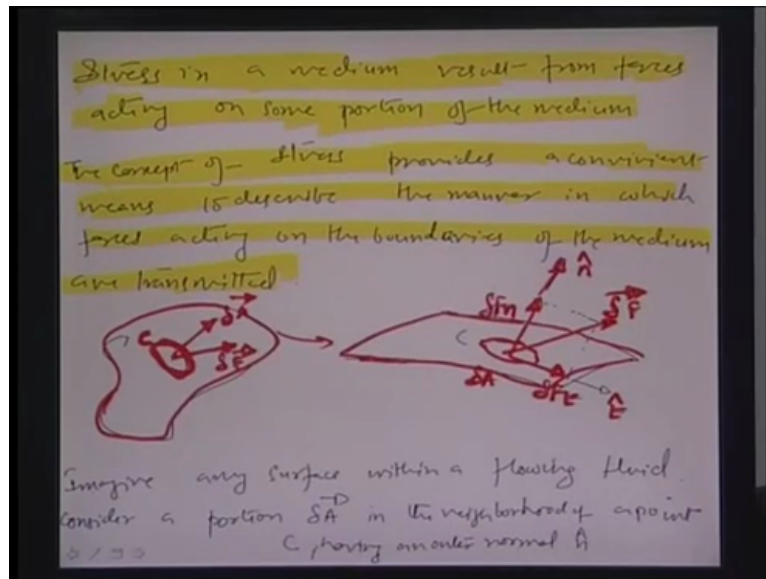 Stress in a medium result from forces
acting on some portion of the medium
The concept of Stress provides a convinient
means to describe the manner in which
forces acting on the boundaries of the medium
are transmitted.
C δA δF
δFn n̂ δF
C
δA δFt t̂
Imagine any surface within a flowing fluid.
consider a portion δA in the neighborhood of a point
C, having an outer normal n̂